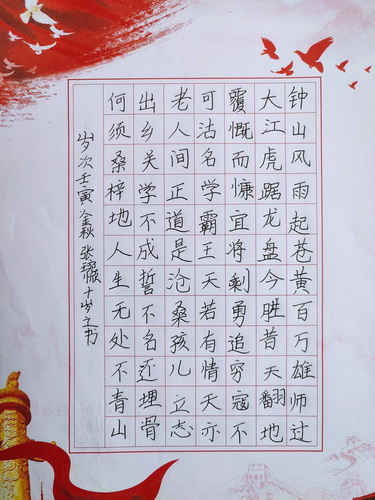 钟山风雨起苍黄百万雄师过
大江虎踞龙盘今胜昔天翻地
覆慨而慷宜将剩勇追穷寇不
可沽名学霸王天若有情天亦
老人间正道是沧桑孩儿立志
出乡关学不成誓不名还埋骨
何须桑梓地人生无处不青山
岁次壬寅金秋 张 十岁之书